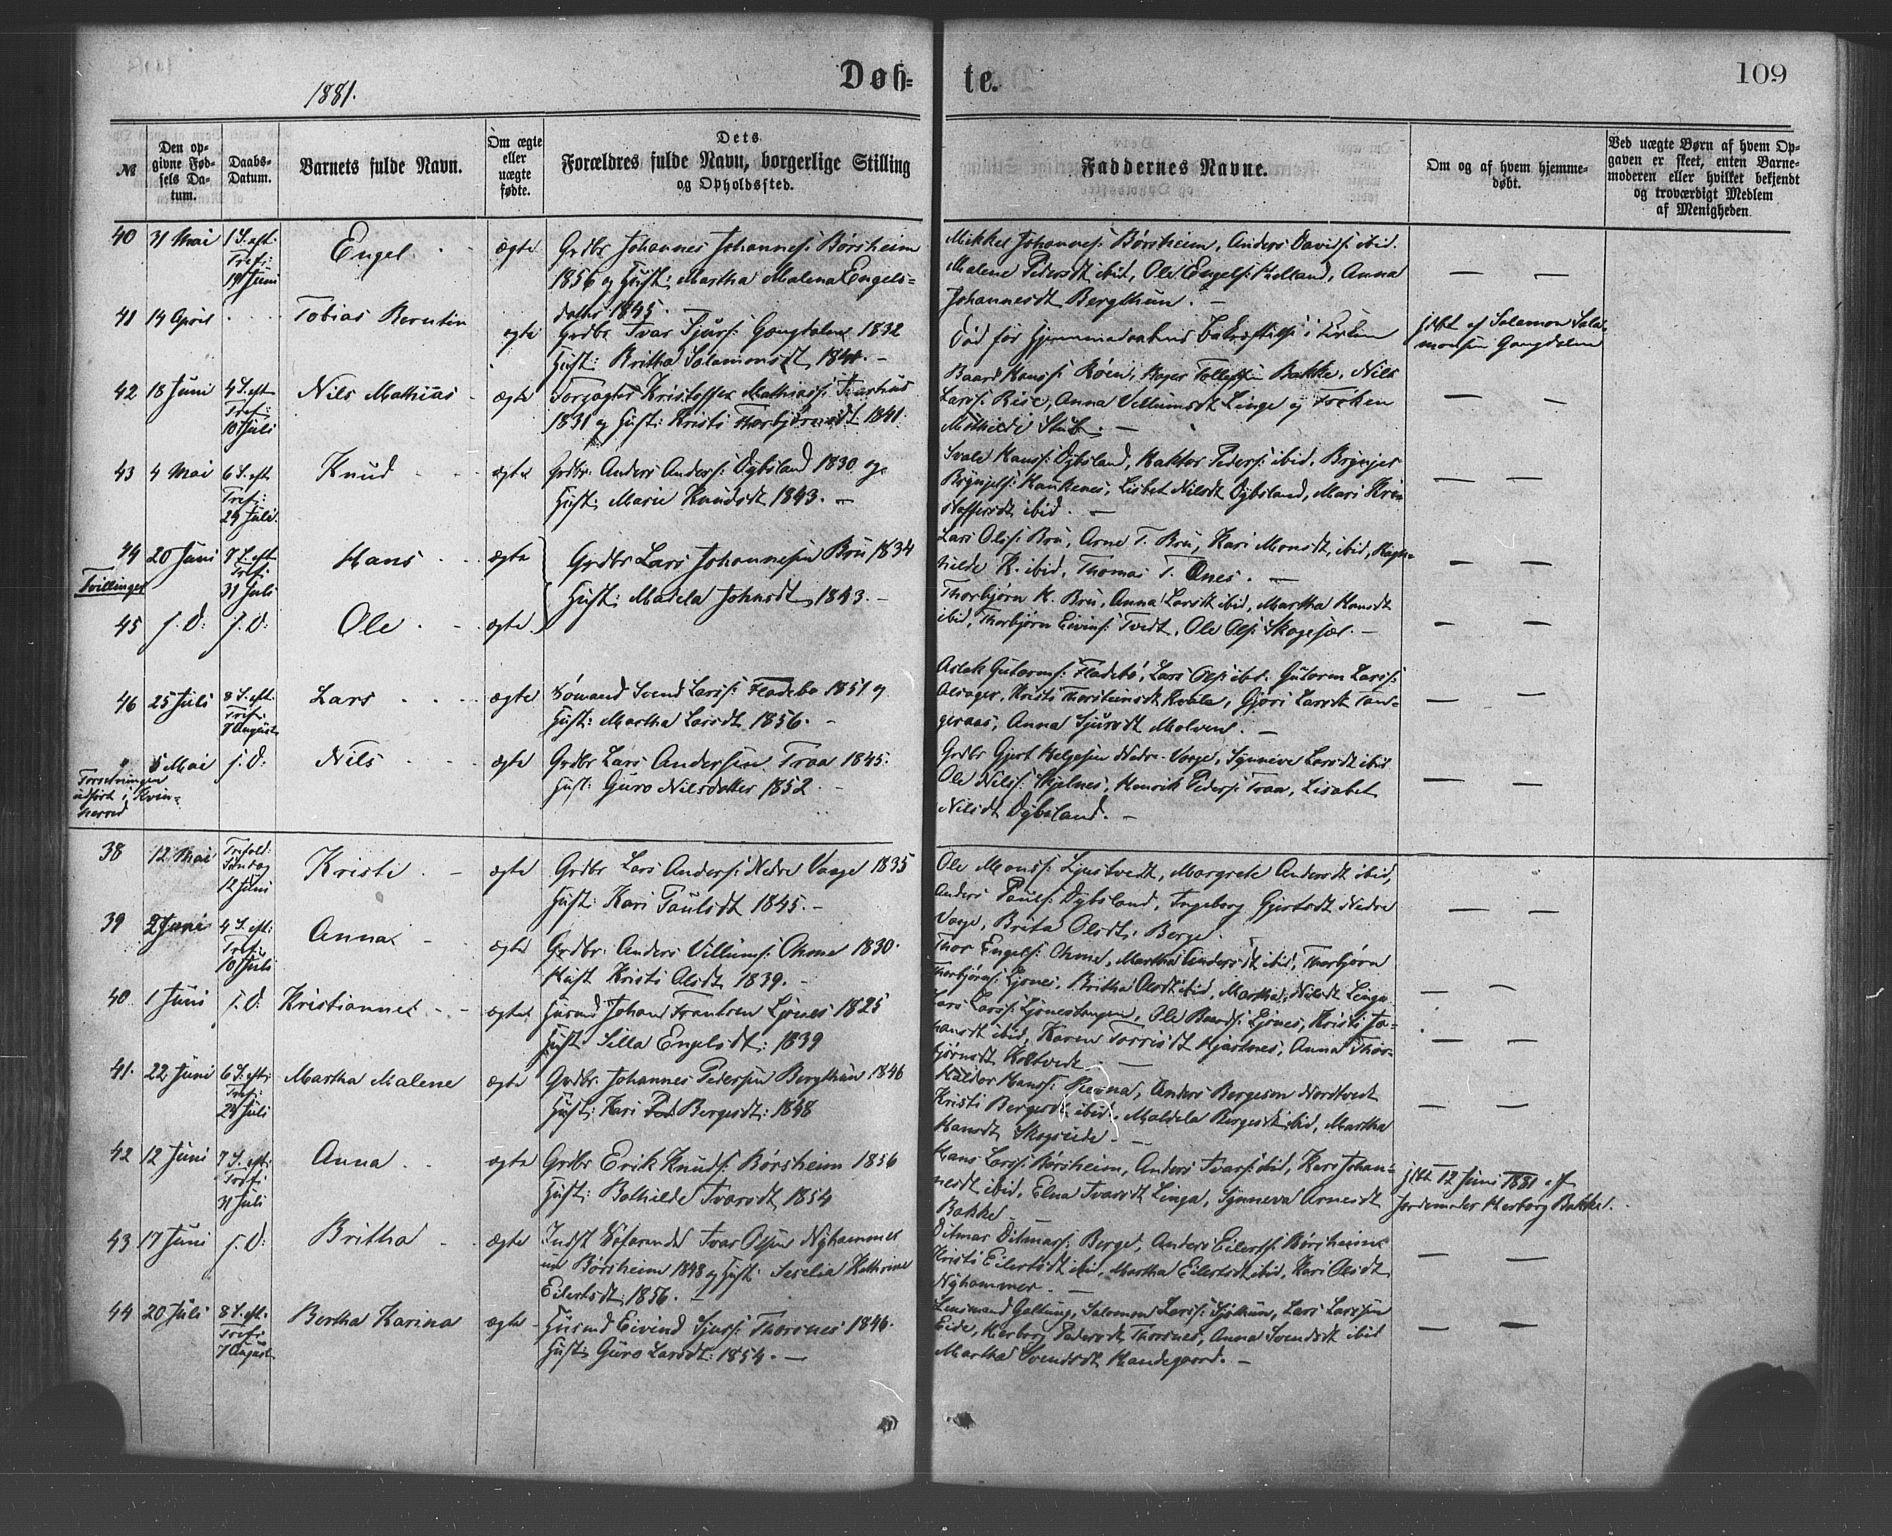 1881.
Døb=
te.
109
№
Den op-
givne Fød-
sels Da-
tum.
Daabs-
Datum.
Barnets fulde Navn.
Om ægte
eller
uægte
fødte.
Dets
Forældres fulde Navn, borgerlige Stilling
og Opholdssted.
Faddernes Navne.
Om og af hvem hjemme-
døbt.
Ved uægte Børn af hvem Op-
gaven er skeet, enten Barne-
moderen eller hvilket bekjendt
og troværdigt Medlem
af Menigheden.
40 31 Mai 1 S. eft.
Tref:
19 Juni
Engel
ægte
Grdbr Johannes Johanness: Børsheim
1856 og Hust: Martha Malena Engels-
datter 1845.
Mikkel Johanness: Børsheim, Anders Davids: ibid.
Malene Pedersdt ibid, Ole Engels: Holland, Anna
Johannesdt Bergthun. —
41 14 April
Tobias Berntin
ægte
Grdbr Ivar Sjurs: Gangdalen 1832
Hust: Britha Salamonsdt 184
Død før Hjemmedaabens Bekræftelse i Kirken
jdbt af Salemon Sala-
monsen Gangdalen
42 18 Juni 4 S. eft
Tref:
10 Juli
Nils Mathias
ægte
Kristoffer Mathiass:
1831 og Hust: Kristi Thorbjørnsdt 1841.
Baard Hanss: Røen, Tollefsen Bakke, Nils
Larss: Anna Villumsdt Linge og Frøken
Mathilde Stub. —
43 4 Mai 6 S. eft
Tref:
24 Juli
Knud
ægte
Grdbr. Anders Anders: Dybsland 1830 og
Hust: Marie Knudsdt 1843. —
Svale Hanss: Dybsland, Peders: ibid, Brynjel
Brynjels: Haukenes, Lisbet Nilsdt Dybsland, Mari Kris
stoffersdt ibid. —
44 20 Juni 7 S. eft
Tref:
31 Juli
Tvillinger
Hans
ægte
Grdbr Lars Johannesen Bru 1834
Hust: Madela Johnsdt 1843. —
Lars Ols: Bru, Arne T. Bru, Kari Monsdt, ibid, Ragn-
hilde K. ibid, Thomas T. Ænes. —
45 s. D: s. D:
Ole
ægte
Thorbjørn K. Bru, Anna Larsdt ibid, Martha Hansdt
ibid, Thorbjørn Eivins: Tvedt, Ole Ols: Skogesæl. —
46 25 Juli 8 S. eft.
Tref:
7 August
Lars
ægte
Sømand Svend Larss: Fladebø 1851 og
Hust: Martha Larsdt 1856. —
Aslak Gutorms: Fladebø, Lars Ols: ibd. Gutorm Larss:
Alsager, Kristi Thorsteinsdt Kvale, Gjøri Larsdt Tan-
geraas, Anna Sjursdt Molven. —
" 5 Mai s. D:
Forretningen
udført i Kvin-
herred
Nils
ægte
Grdbr Lars Andersen Traa 1845.
Hust: Guro Nilsdatter 1852. —
Grdbr Gjert Helgesen Nedre-Vaage, Synneve Larsdt ibid
Ole Nilss: Skjelnes, Henrik Peders: Traa, Lisabet
Nilsdt Dybsland. —
38 12 Mai Trefold:
Søndag
12 Juni
Kristi
ægte
Grdbr Lars Anders: Nedre Vaage 1835
Hust: Kari Paulsdt 1845. —
Ole Monss: Ljustvedt, Margrete Andersdt ibid,
Anders Pauls: Dybsland, Ingeborg Gjertsdt Nedre
Vaage, Brita Olsdt: Berge.
39 2 Juni 4 S. eft:
Tref:
10 Juli
Anna
ægte
Grdbr. Anders Villums: Ohme 1830.
Hust Kristi Olsdt 1839. —
Thor Engels: Ohme, Martha Andersdt ibid, Thorbjørn
Thorbjørns: Ljones, Britha Olsdt ibid, Martha Nilsdt Linga
40. 1 Juni s. D:
Kristianne
ægte
Husmd Johan Frantsen Ljones 1825
Hust: Silla Engelsdt: 1839
Lars Larss: Ljonestangen, Ole Baards: Ljones, Kristi Jo-
hansdt ibid, Karen Torrisdt Hjartnes, Anna Thor-
bjørnsdt Kotvedt. —
41. 22 Juni 6 S. eft:
Tref:
24 Juli
Martha Malene
ægte
Grdbr. Johannes Pedersen Bergthun 1846
Hust: Kari Ped Bergesdt: 1848
Halder Hanss: Anders Bergesen Nordtvedt
Kristi Bergesdt ibid, Maldela Bergesdt ibid, Martha
Hansdt Skogseide. —
42 12 Juni 7 S. eft:
Tref:
31 Juli
Anna
ægte
Grdbr Erik Knuds: Børsheim 1856
Hust: Bothilde Ivarsdt 1854
Hans Larss: Børsheim, Anders Ivars: ibid, Kari Johan-
nesdt ibid, Elna Ivarsdt Linga, Synneva Arnesdt
Bakke.
jdbt 12 Juni 1881 af
Jordemoder Herborg Bakke.
43 17 Juni s. D:
Britha
ægte
Indst Søfarende Ivar Olsen Nyhammer
um Børsheim 1848 og Hust: Seselia Kathrine
Eilertsdt: 1856. —
Ditmar Ditmars: Berge, Anders Eilerts: Børsheim
Kristi Eilertsdt ibid, Martha Eilertsdt ibid, Kari Olsdt
Nyhammer. —
44 20 Juli 8 S. eft.
Tref:
7 August
Bertha Karina
ægte
Husmd Eivind Sjurs: Thorsnes 1846.
Hust: Guro Larsdt: 1854. —
Lensmand Galtung, Salomon Larss: Sjothun, Lars Larssen
Eide, Herborg Pedersdt Thorsnes, Anna Svendsdt ibid
Martha Svendsdt Handegaard. —